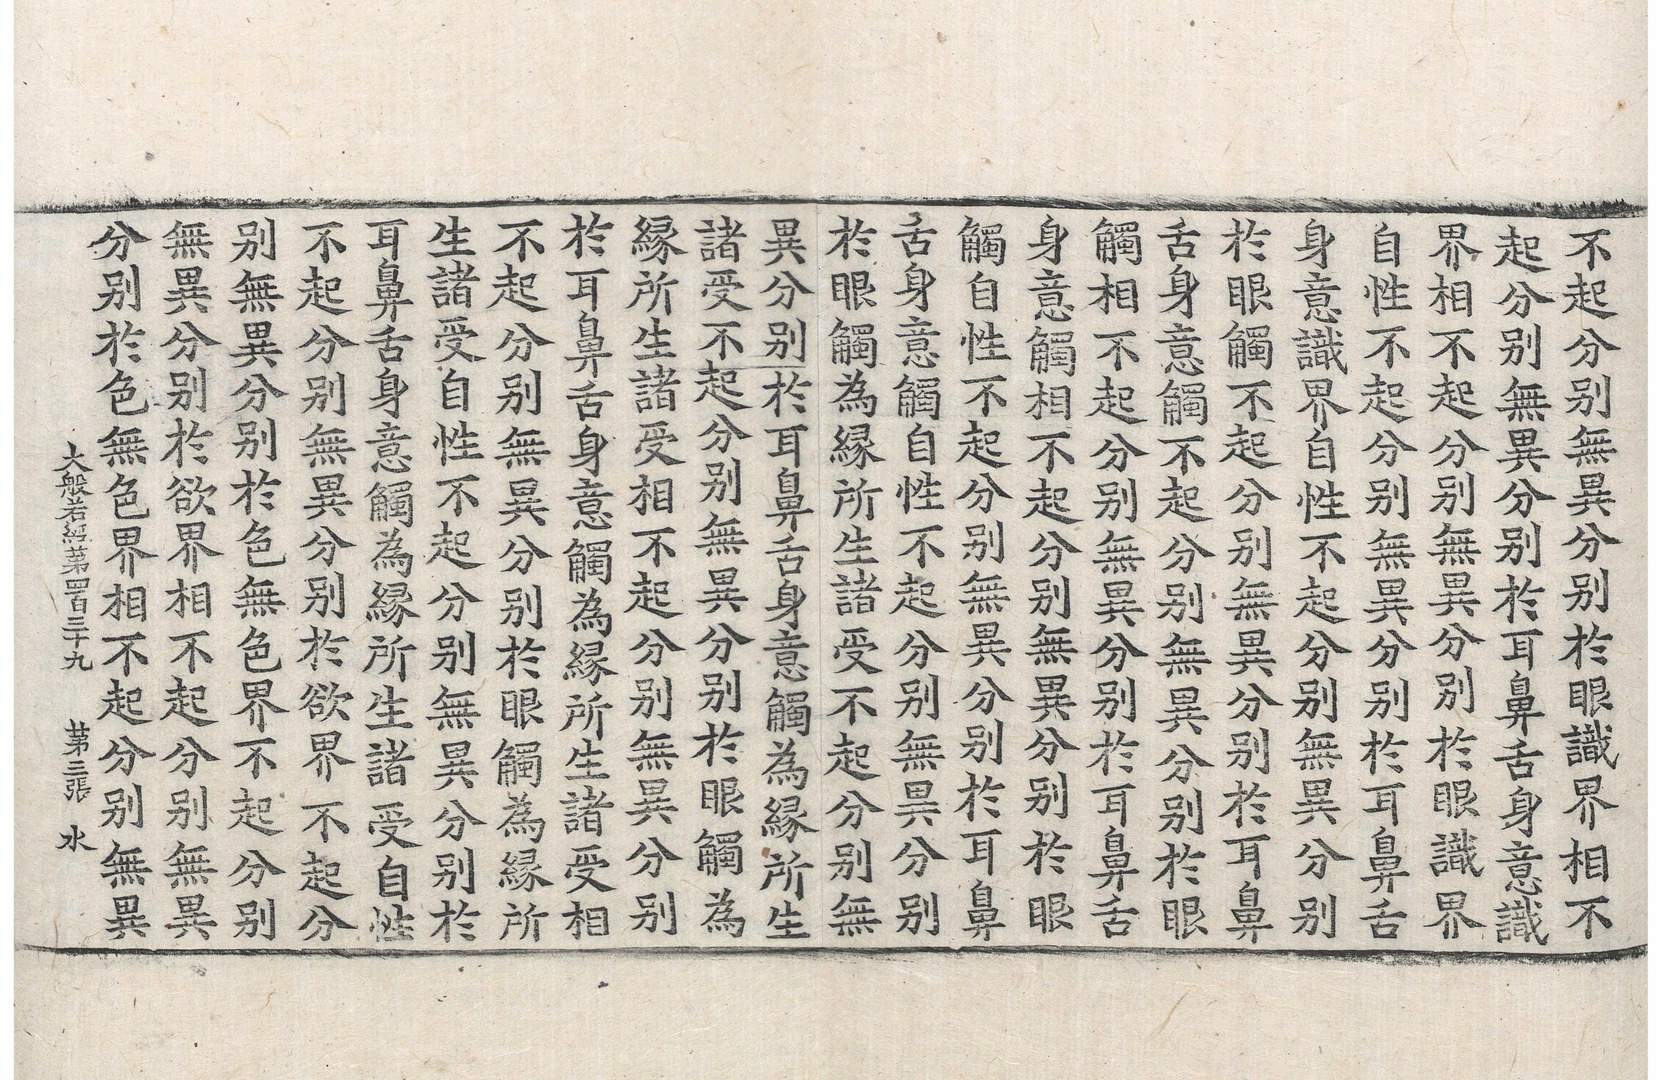 不起分别無異分别於眼識界相不
起分别無異分别於耳鼻舌身意識
界相不起分别無異分别於眼識界
自性不起分别無異分别於耳鼻舌
身意識界自性不起分别無異分别
於眼觸不起分别無異分别於耳鼻
舌身意觸不起分别無異分别於眼
觸相不起分别無異分别於耳鼻舌
身意觸相不起分别無異分别於眼
觸自性不起分别無異分别於耳鼻
舌身意觸自性不起分别無異分别
於眼觸為縁所生諸受不起分别無
異分别於耳鼻舌身意觸為縁所生
諸受不起分别無異分别於眼觸為
縁所生諸受相不起分别無異分别
於耳鼻舌身意觸為縁所生諸受相
不起分别無異分别於眼觸為縁所
生諸受自性不起分别無異分别於
耳鼻舌身意觸為縁所生諸受自性
不起分别無異分别於欲界不起分
别無異分别於色無色界不起分别
無異分别於欲界相不起分别無異
分别於色無色界相不起分别無異
大般若經第四百三十九 第三張 水